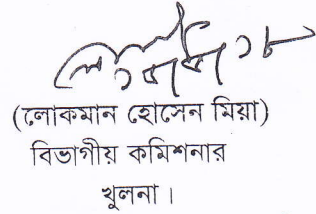 (লোকমান হোসেন মিয়া)
বিভাগীয় কমিশনার
খুলনা।